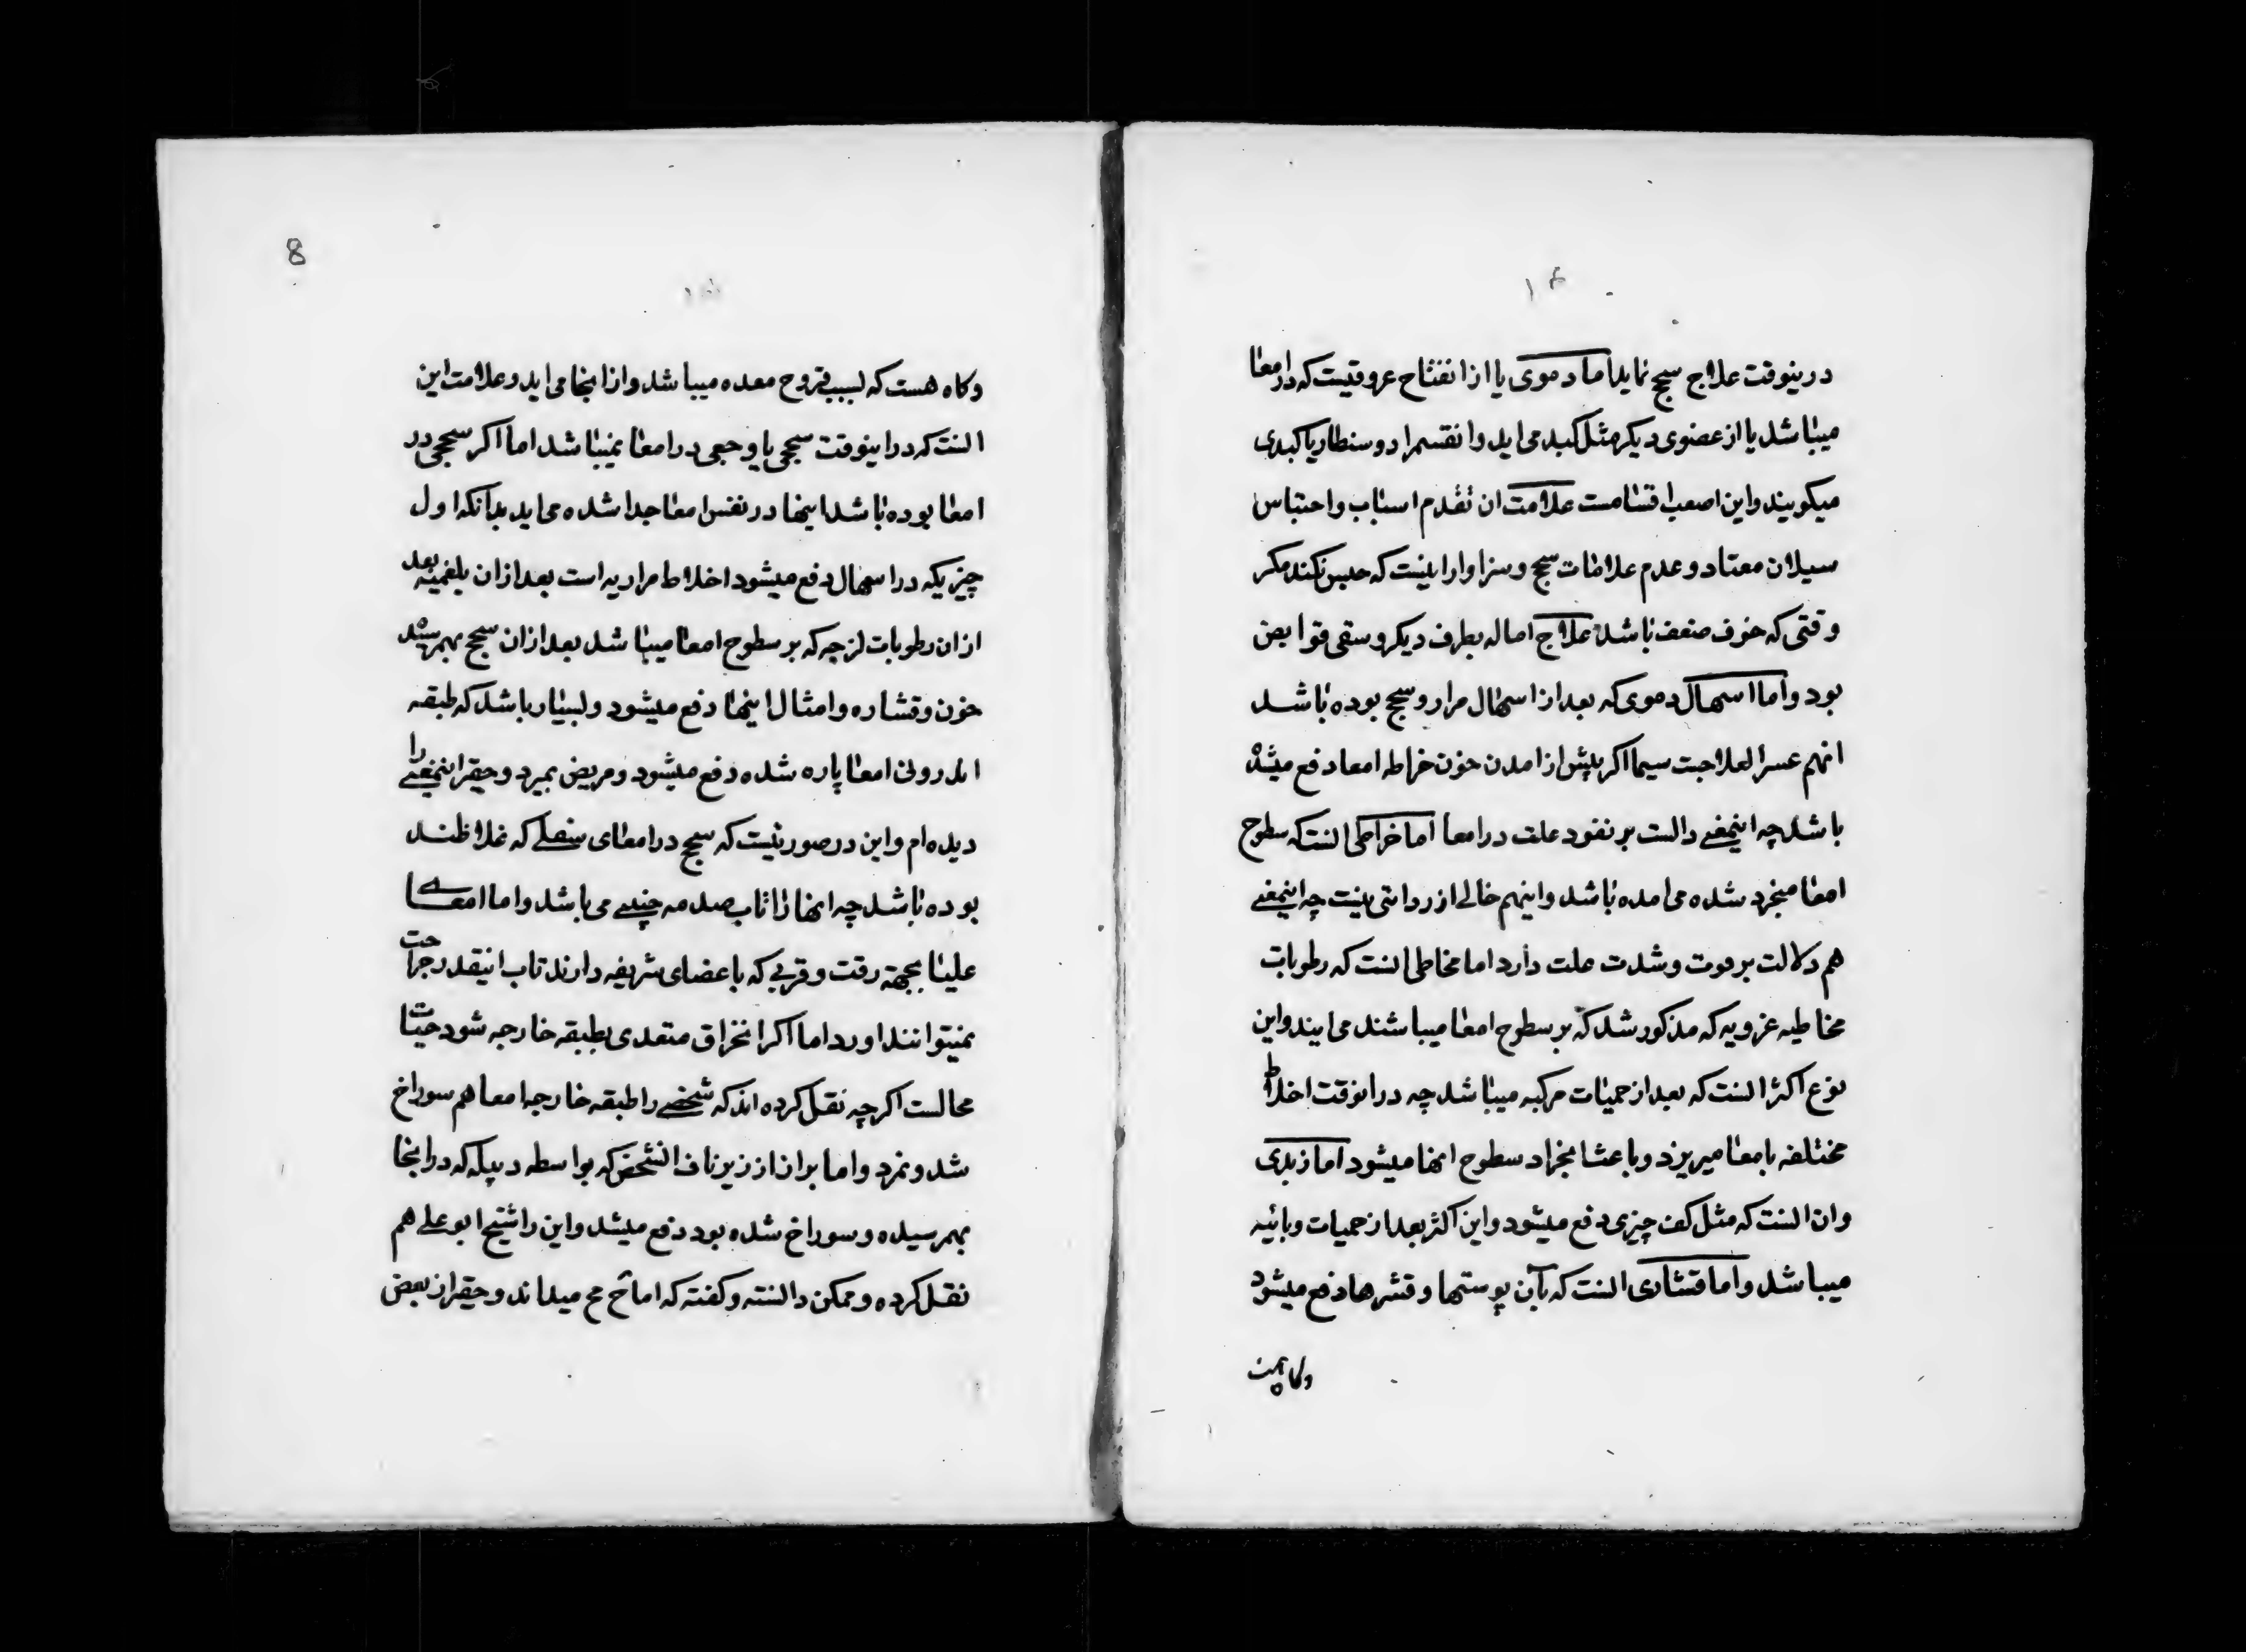 ۱۴
درینوقت علاج سحج نماید اما دموی یا از انفتاح عروقیست که در امعا
میباشد یا از عضوی دیکر مثل کبد می اید و انقسم را دوسنطاریا کبدی
میکویند و این اصعب اقسامست علامت ان تقدم اسباب و احتباس
سیلان معتاد و عدم علامات سحج و سزاوار اینست که حبس نکند مکر
وقتی که خوف ضعف باشد علاج اماله بطرف دیکر و سقی قوابض
بود و اما اسهال دموی که بعد از اسهال مرار و سحج بوده باشد
انهم عسر العلاجست سیما اکر پیش از امدن خون خراطه امعا دفع میشده
باشد چه اینمعنی دالست بر نفود علت در امعا اما خراطی انست که سطوح
امعا منجرد شده می امده باشد و اینهم خالی از ردائتی نیست چه اینمعنی
هم دلالت بر قوت و شدت علت دارد اما مخاطی انست که رطوبات
مخاطیه غرویه که مذکور شد که بر سطوح امعا میباشند می ایند و این
نوع اکثر انست که بعد از حمیات مرکبه میباشد چه در انوقت اخلاط
مختلفه بامعا میریزد و باعث انجراد سطوح انها میشود اما زبدی
و ان انست که مثل کف چیزی دفع میشود و این اکثر بعد از حمیات وبائیه
میباشد و اما قشاری انست که بآن پوستها و قشرها دفع میشود
وکاه هست
8
۱۵
وکاه هست که بسبب قروح معده میباشد و از انجا می اید و علامت این
انست که در اینوقت سحجی یا وجعی در امعا نمیباشد اما اکر سحجی در
امعا بوده باشد اینها در نفس امعا جدا شده می اید بدآنکه اول
چیزیکه در اسهال دفع میشود اخلاط مراریه است بعد از ان بلغمیه بعد
از ان رطوبات لزجه که بر سطوح امعا میباشد بعد از ان سحج بهم رسیده
خون و قشاره و امثال اینها دفع میشود و بسیار باشد که طبقه
اندرونی امعا پاره شده دفع میشود و مریض بمیرد و حقیر اینمعنی را
دیده ام و این در صورتیست که سحج در امعای سفلی که غلاظند
بوده باشد چه انها را تاب صدمه چنینی می باشد و اما امعای
علیا بجهة رقت و قربی که باعضای شریفه دارند تاب انیقدر جراحت
نمیتوانند اورد اما اکر انخراق متعدی بطبقه خارجه شود حیات
محالست اکرچه نقل کرده اند که شخصی را طبقه خارجه امعا هم سوراخ
شد و نمرد و اما براز از زیر ناف انشخص که بواسطه دبیله که در انجا
بهم رسیده و سوراخ شده بود دفع میشد و این را شیخ ابو علی هم
نقل کرده و ممکن دانسته و کفته که اما حقیر از بعض